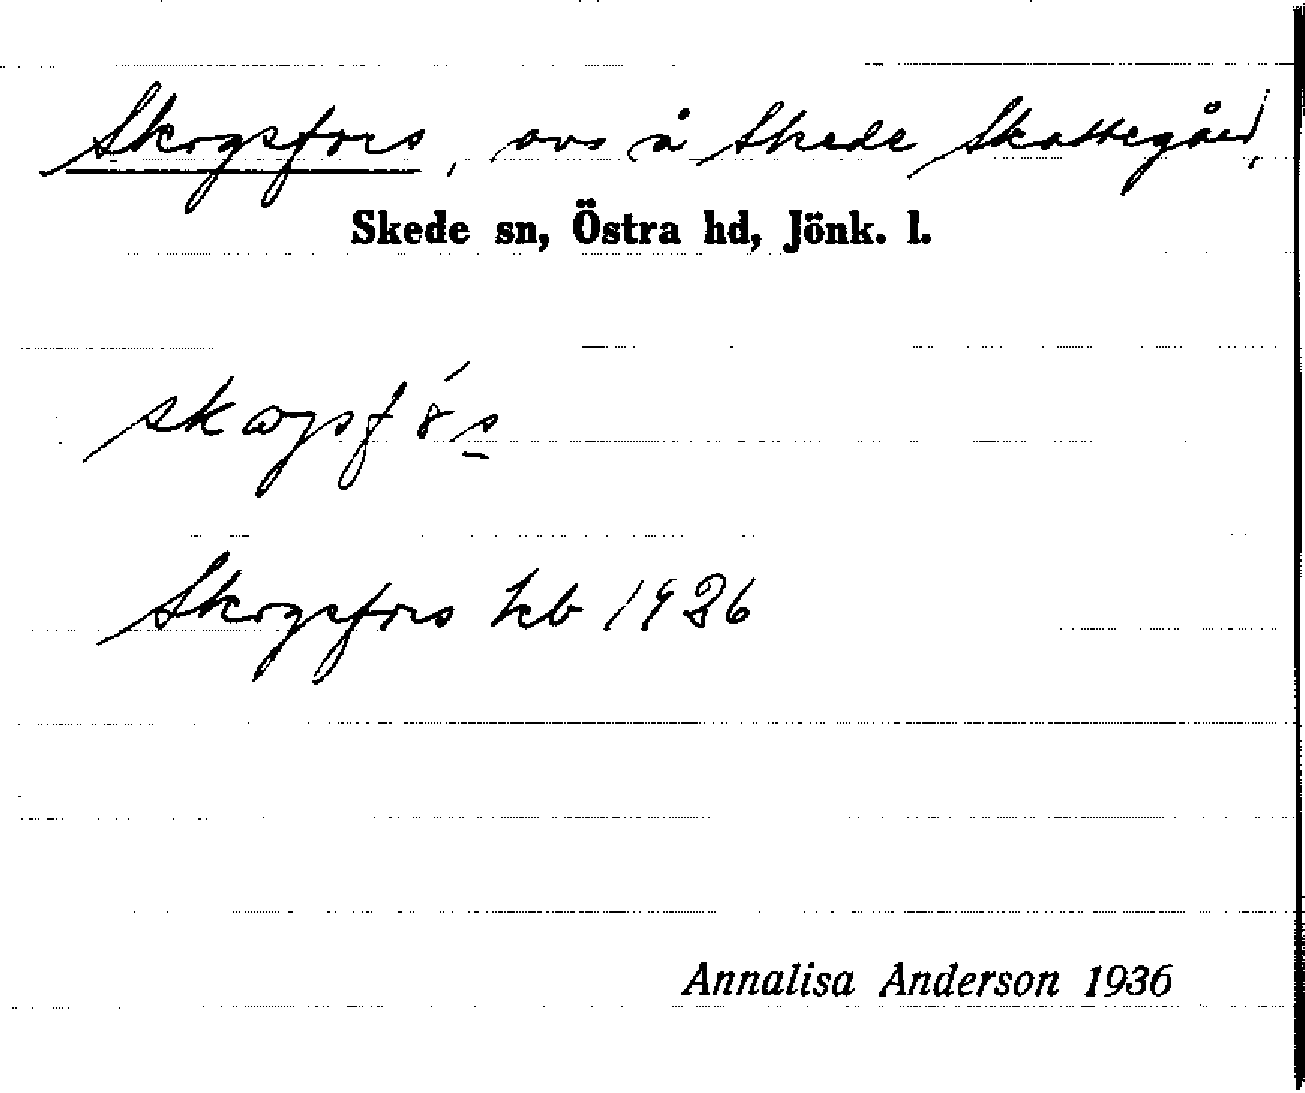 Skogsfors, avs å Skede Skattegård,
Skede sn, Östra hd, Jönk. l.
Skogsfors hb 1936
Annalisa Anderson 1936